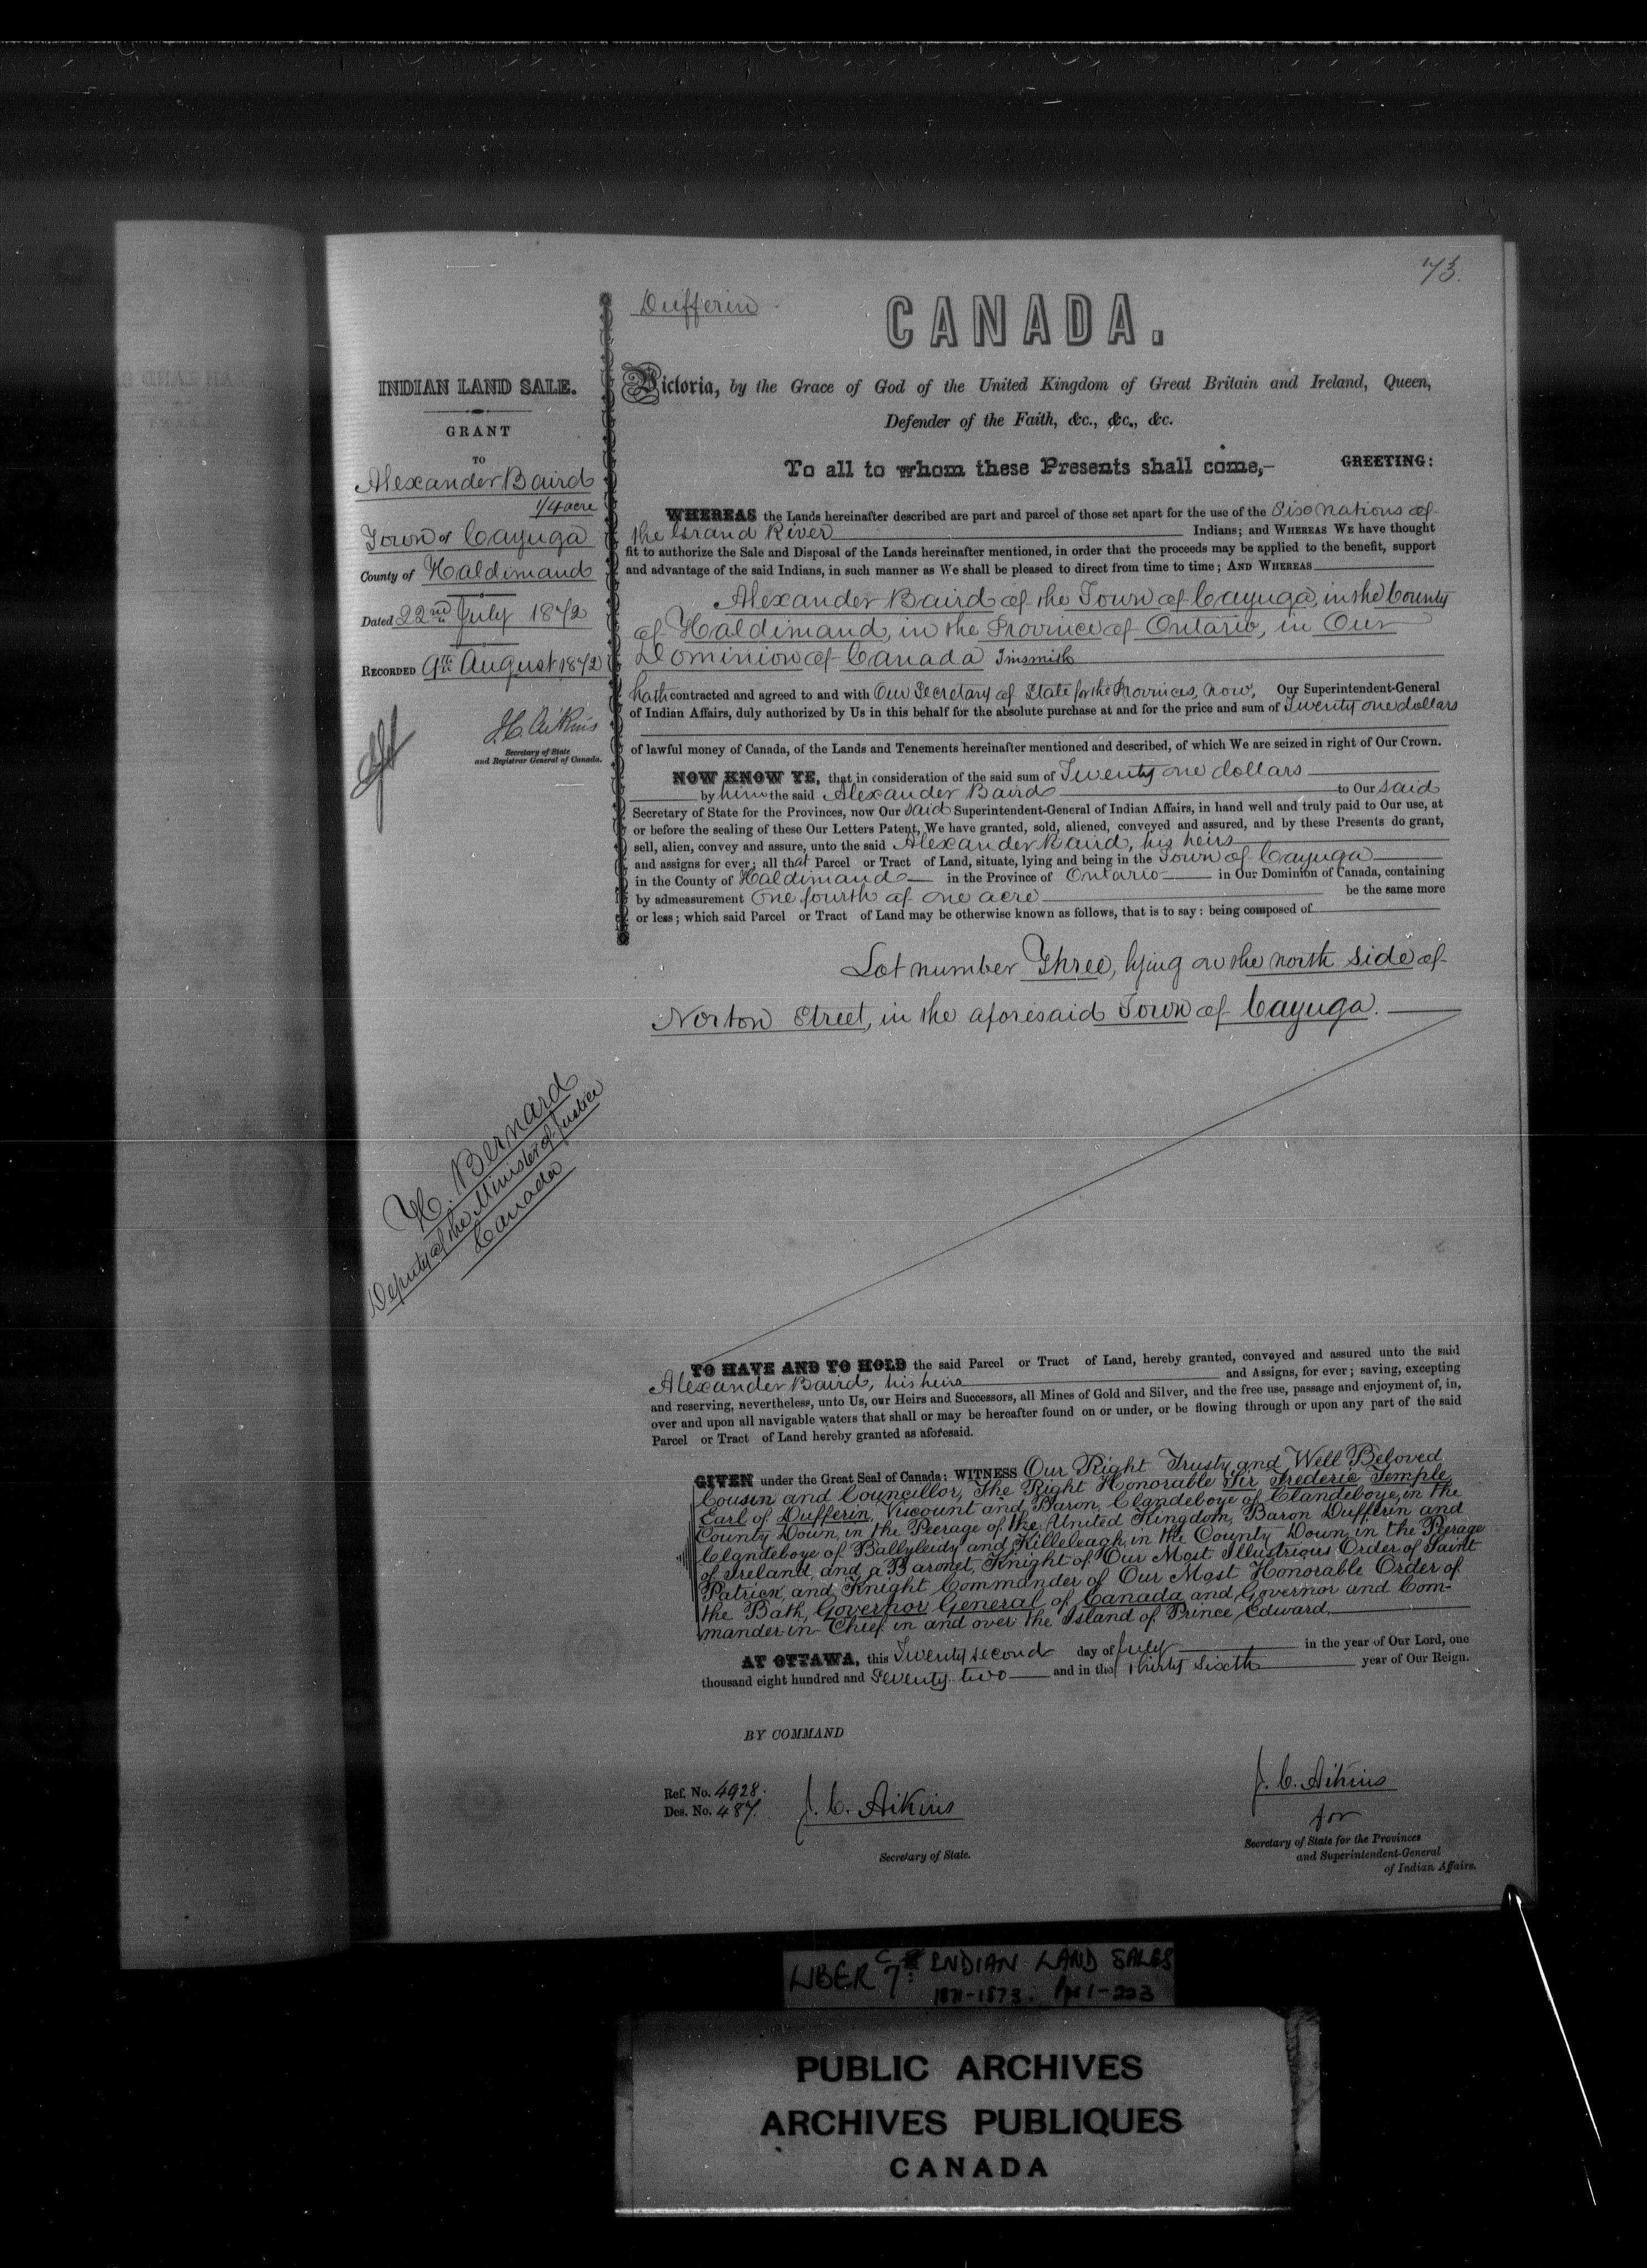 73.
Dufferin
CANADA.
INDIAN LAND SALE.
GRANT
TO
Alexander Baird
1/4 acre
Town of Cayuga
County of Haldimand
Dated 22nd July 1872
RECORDED 9th August 1872
Secretary of State
and Registrar General of Canada.
Victoria, by the Grace of God of the United Kingdom of Great Britain and Ireland, Queen,
Defender of the Faith, &c., &c., &c.
To all to whom these Presents shall come,— GREETING:
WHEREAS the Lands hereinafter described are part and parcel of those set apart for the use of the Six Nations of
the Grand River Indians; and WHEREAS WE have thought
fit to authorize the Sale and Disposal of the Lands hereinafter mentioned, in order that the proceeds may be applied to the benefit, support
and advantage of the said Indians, in such manner as We shall be pleased to direct from time to time; AND WHEREAS
Alexander Baird of the Town of Cayuga, in the County
of Haldimand, in the Province of Ontario, in Our
Dominion of Canada Tinsmith
hath contracted and agreed to and with Our Secretary of State for the Provinces, now, Our Superintendent-General
of Indian Affairs, duly authorized by Us in this behalf for the absolute purchase at and for the price and sum of Twenty one dollars
of lawful money of Canada, of the Lands and Tenements hereinafter mentioned and described, of which We are seized in right of Our Crown.
NOW KNOW YE, that in consideration of the said sum of Twenty one dollars
by him the said Alexander Baird to Our said
Secretary of State for the Provinces, now Our said Superintendent-General of Indian Affairs, in hand well and truly paid to Our use, at
or before the sealing of these Our Letters Patent, We have granted, sold, aliened, conveyed and assured, and by these Presents do grant,
sell, alien, convey and assure, unto the said Alexander Baird, his heirs
and assigns for ever; all that Parcel or Tract of Land, situate, lying and being in the Town of Cayuga
in the County of Haldimand in the Province of Ontario in Our Dominion of Canada, containing
by admeasurement One fourth of one acre be the same more
or less; which said Parcel or Tract of Land may be otherwise known as follows, that is to say: being composed of
Lot number Three, lying on the north side of
Norton Street, in the aforesaid Town of Cayuga.
H. Bernard
Deputy of the Minister of Justice
Canada
TO HAVE AND TO HOLD the said Parcel or Tract of Land, hereby granted, conveyed and assured unto the said
Alexander Baird, his heirs and Assigns, for ever; saving, excepting
and reserving, nevertheless, unto Us, our Heirs and Successors, all Mines of Gold and Silver, and the free use, passage and enjoyment of, in,
over and upon all navigable waters that shall or may be hereafter found on or under, or be flowing through or upon any part of the said
Parcel or Tract of Land hereby granted as aforesaid.
GIVEN under the Great Seal of Canada: WITNESS Our Right Trusty and Well Beloved
Cousin and Councillor, The Right Honorable Sir Frederic Temple
Earl of Dufferin, Viscount and Baron Clandeboye of Clandeboye, in the
County Down, in the Peerage of the United Kingdom, Baron Dufferin and
Clandeboye of Ballyleidy and Killeleagh, in the County Down, in the Peerage
of Ireland, and a Baronet, Knight of Our Most Illustrious Order of Saint
Patrick, and Knight Commander of Our Most Honorable Order of
the Bath, Governor General of Canada and Governor and Com-
mander-in-Chief in and over the Island of Prince Edward.
AT OTTAWA, this Twenty second day of July in the year of Our Lord, one
thousand eight hundred and Seventy two and in the Thirty Sixth year of Our Reign.
BY COMMAND
Ref. No. 4928.
Des. No. 487.
J. C. Aikins
Secretary of State.
J. C. Aikins
for
Secretary of State for the Provinces
and Superintendent-General
of Indian Affairs.
LIBER C7: INDIAN LAND SALES
1871-1873. Pps 1-223
PUBLIC ARCHIVES
ARCHIVES PUBLIQUES
CANADA